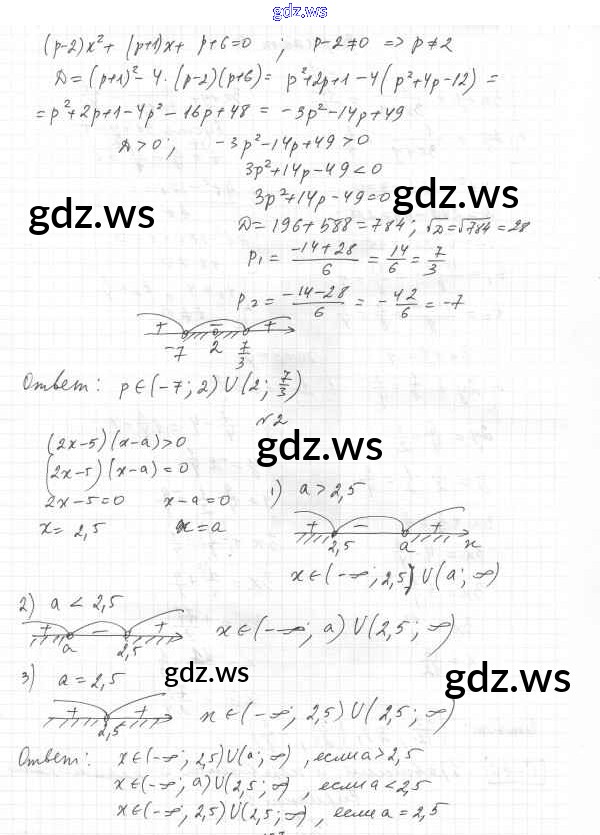 gdz.ws
(p-2)x²+ (p+1)x+ p+6=0 ; p-2≠0 => p≠2
D=(p+1)²-4·(p-2)(p+6)= p²+2p+1-4(p²+4p-12) =
=p²+2p+1-4p²-16p+48 = -3p²-14p+49
D>0 ; -3p²-14p+49>0
3p²+14p-49<0
3p²+14p-49=0
gdz.ws gdz.ws
D=196+588=784; √D=√784=28
p₁= (-14+28)/6 = 14/6 = 7/3
p₂= (-14-28)/6 = -42/6 = -7
+ - +
-7 2 7/3
Ответ: p∈(-7; 2) U (2; 7/3)
№2
gdz.ws
(2x-5)(x-a)>0
(2x-5)(x-a)=0
2x-5=0 x-a=0 1) a>2,5
x= 2,5 x=a
+ - +
2,5 a x
x∈(-∞; 2,5) U (a; ∞)
2) a<2,5
+ - +
a 2,5
x∈(-∞; a) U (2,5; ∞)
3) a=2,5
gdz.ws gdz.ws
+ +
2,5
x∈(-∞; 2,5) U (2,5; ∞)
Ответ: x∈(-∞; 2,5) U (a; ∞), если a>2,5
x∈(-∞; a) U (2,5; ∞), если a<2,5
x∈(-∞; 2,5) U (2,5; ∞), если a=2,5